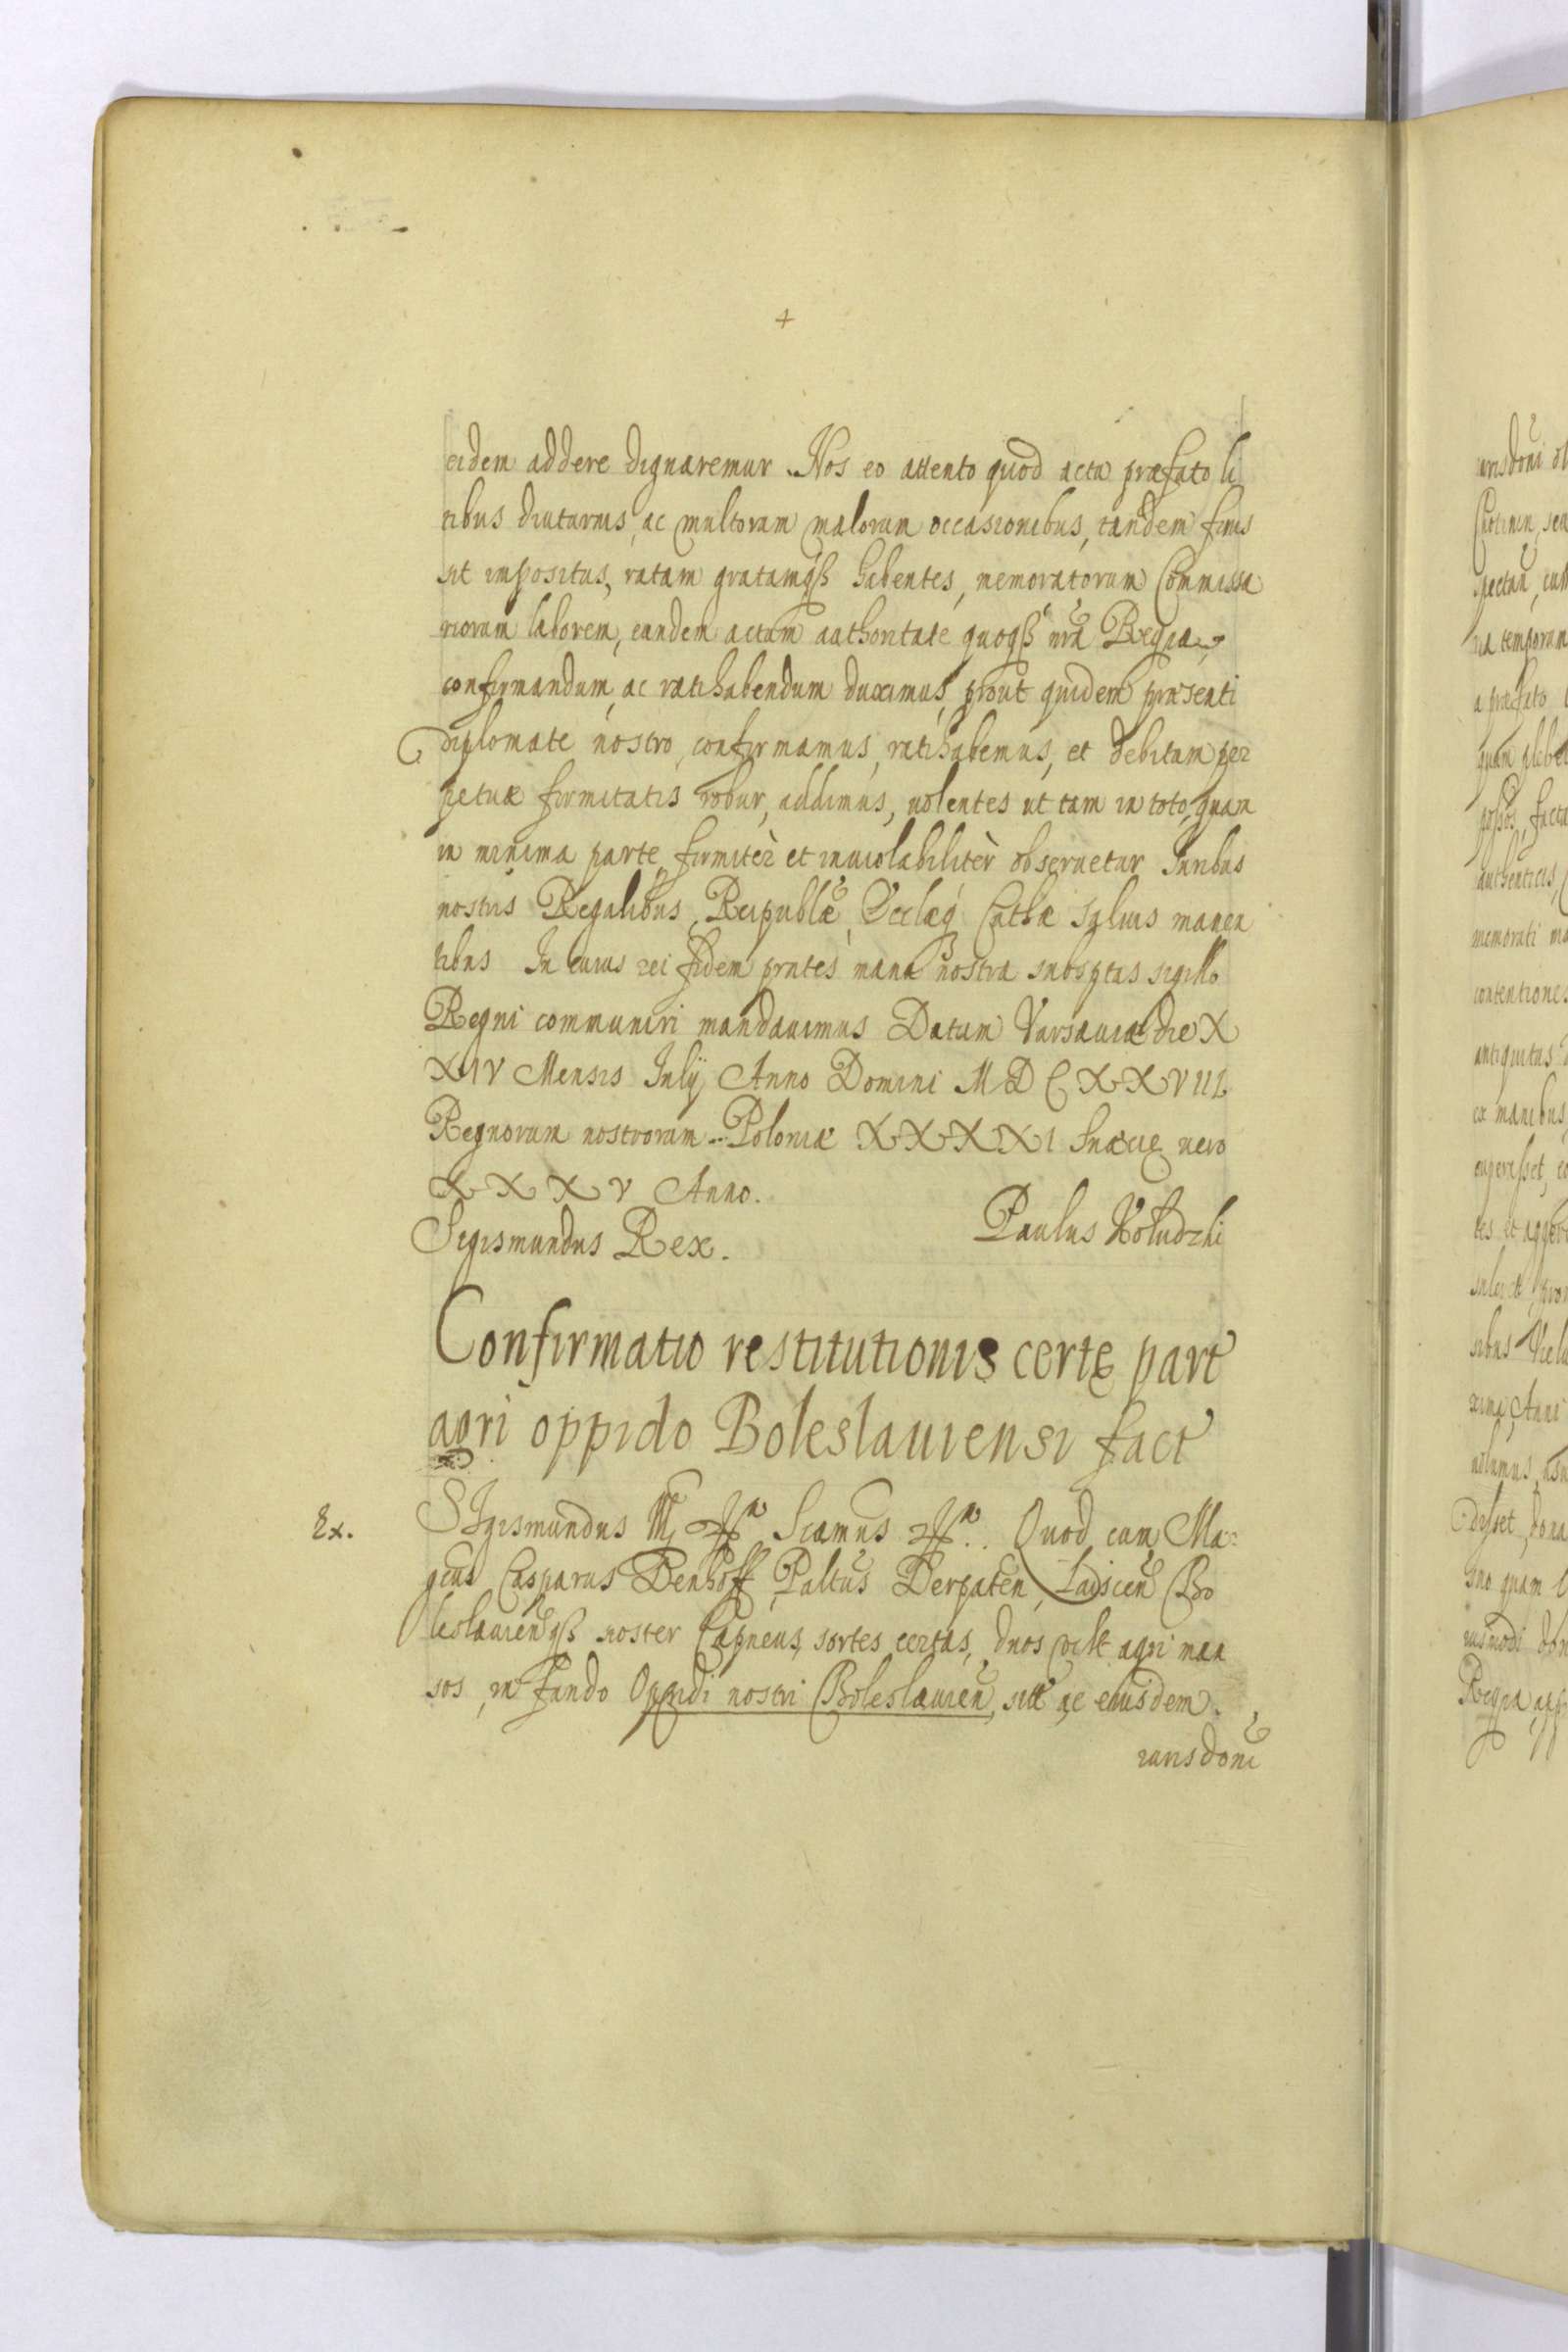 +
eidem addere dignaremur. Nos eo attento quod acta præfato li
tibus diuturnis, ac multorum malorum occasionibus, tandem finis
sit impositus, ratam gratamqß habentes, memoratorum Commissa
riorum laborem, eundem actum authoritate quoqß nrã Regia,
confirmandum, ac ratihabendum duximus, prout quidem præsenti
diplomate nostro, confirmamus, ratihabemus, et debitum per
petuæ firmitatis robur, addimus, uolentes ut tam in toto, quam
in minima parte, firmitèr et inuiolabilitèr obseruetur Iuribus
nostris Regalibus, Reipublæ, Ecclæq Cathæ saluis manen
tibus In cuius rei fidem pntes manu nostra subsptas sigillo
Regni communiri mandauimus Datum Varsauiæ die X
XIV Mensis Iulij Anno Domini M D C X X V III
Regnorum nostrorum Poloniæ X X X X I Suæciæ uero
X X X V Anno.
Sigismundus Rex.
Paulus Wołudzki
Confirmatio restitutionis certę part
agri oppido Boleslauiensi fact
Ex.
SIgismundus III Scamus Quod cum Ma:
gcus Casparus Denhoff, Paltus Derpaten, Ladscen Bo
leslauienqß noster Capneus, sortes certas, duos agri man
sos, in fundo Oppidi nostri Boleslauien, ac eiusdem
iurisdoni
iurisdoni
temporum
a præfato
authenticis,
memorati
contentiones
antiquitus
manibus
Anni
quam
Regia